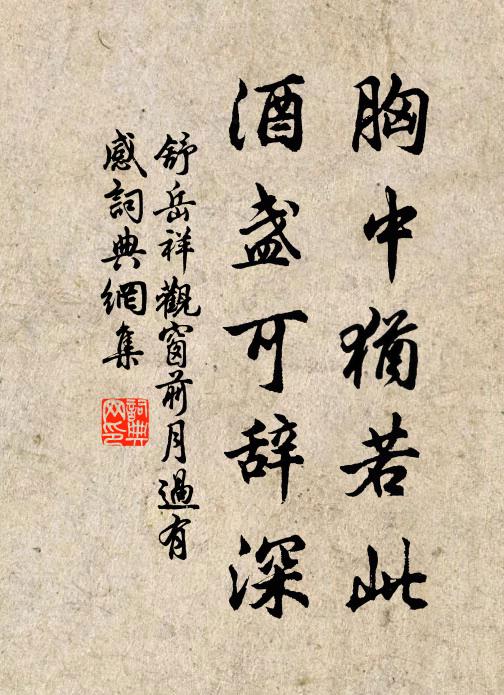 胸中犹若此
酒盏可辞深
舒岳祥觀窗前月過有
感詞典網集
詞典
网印